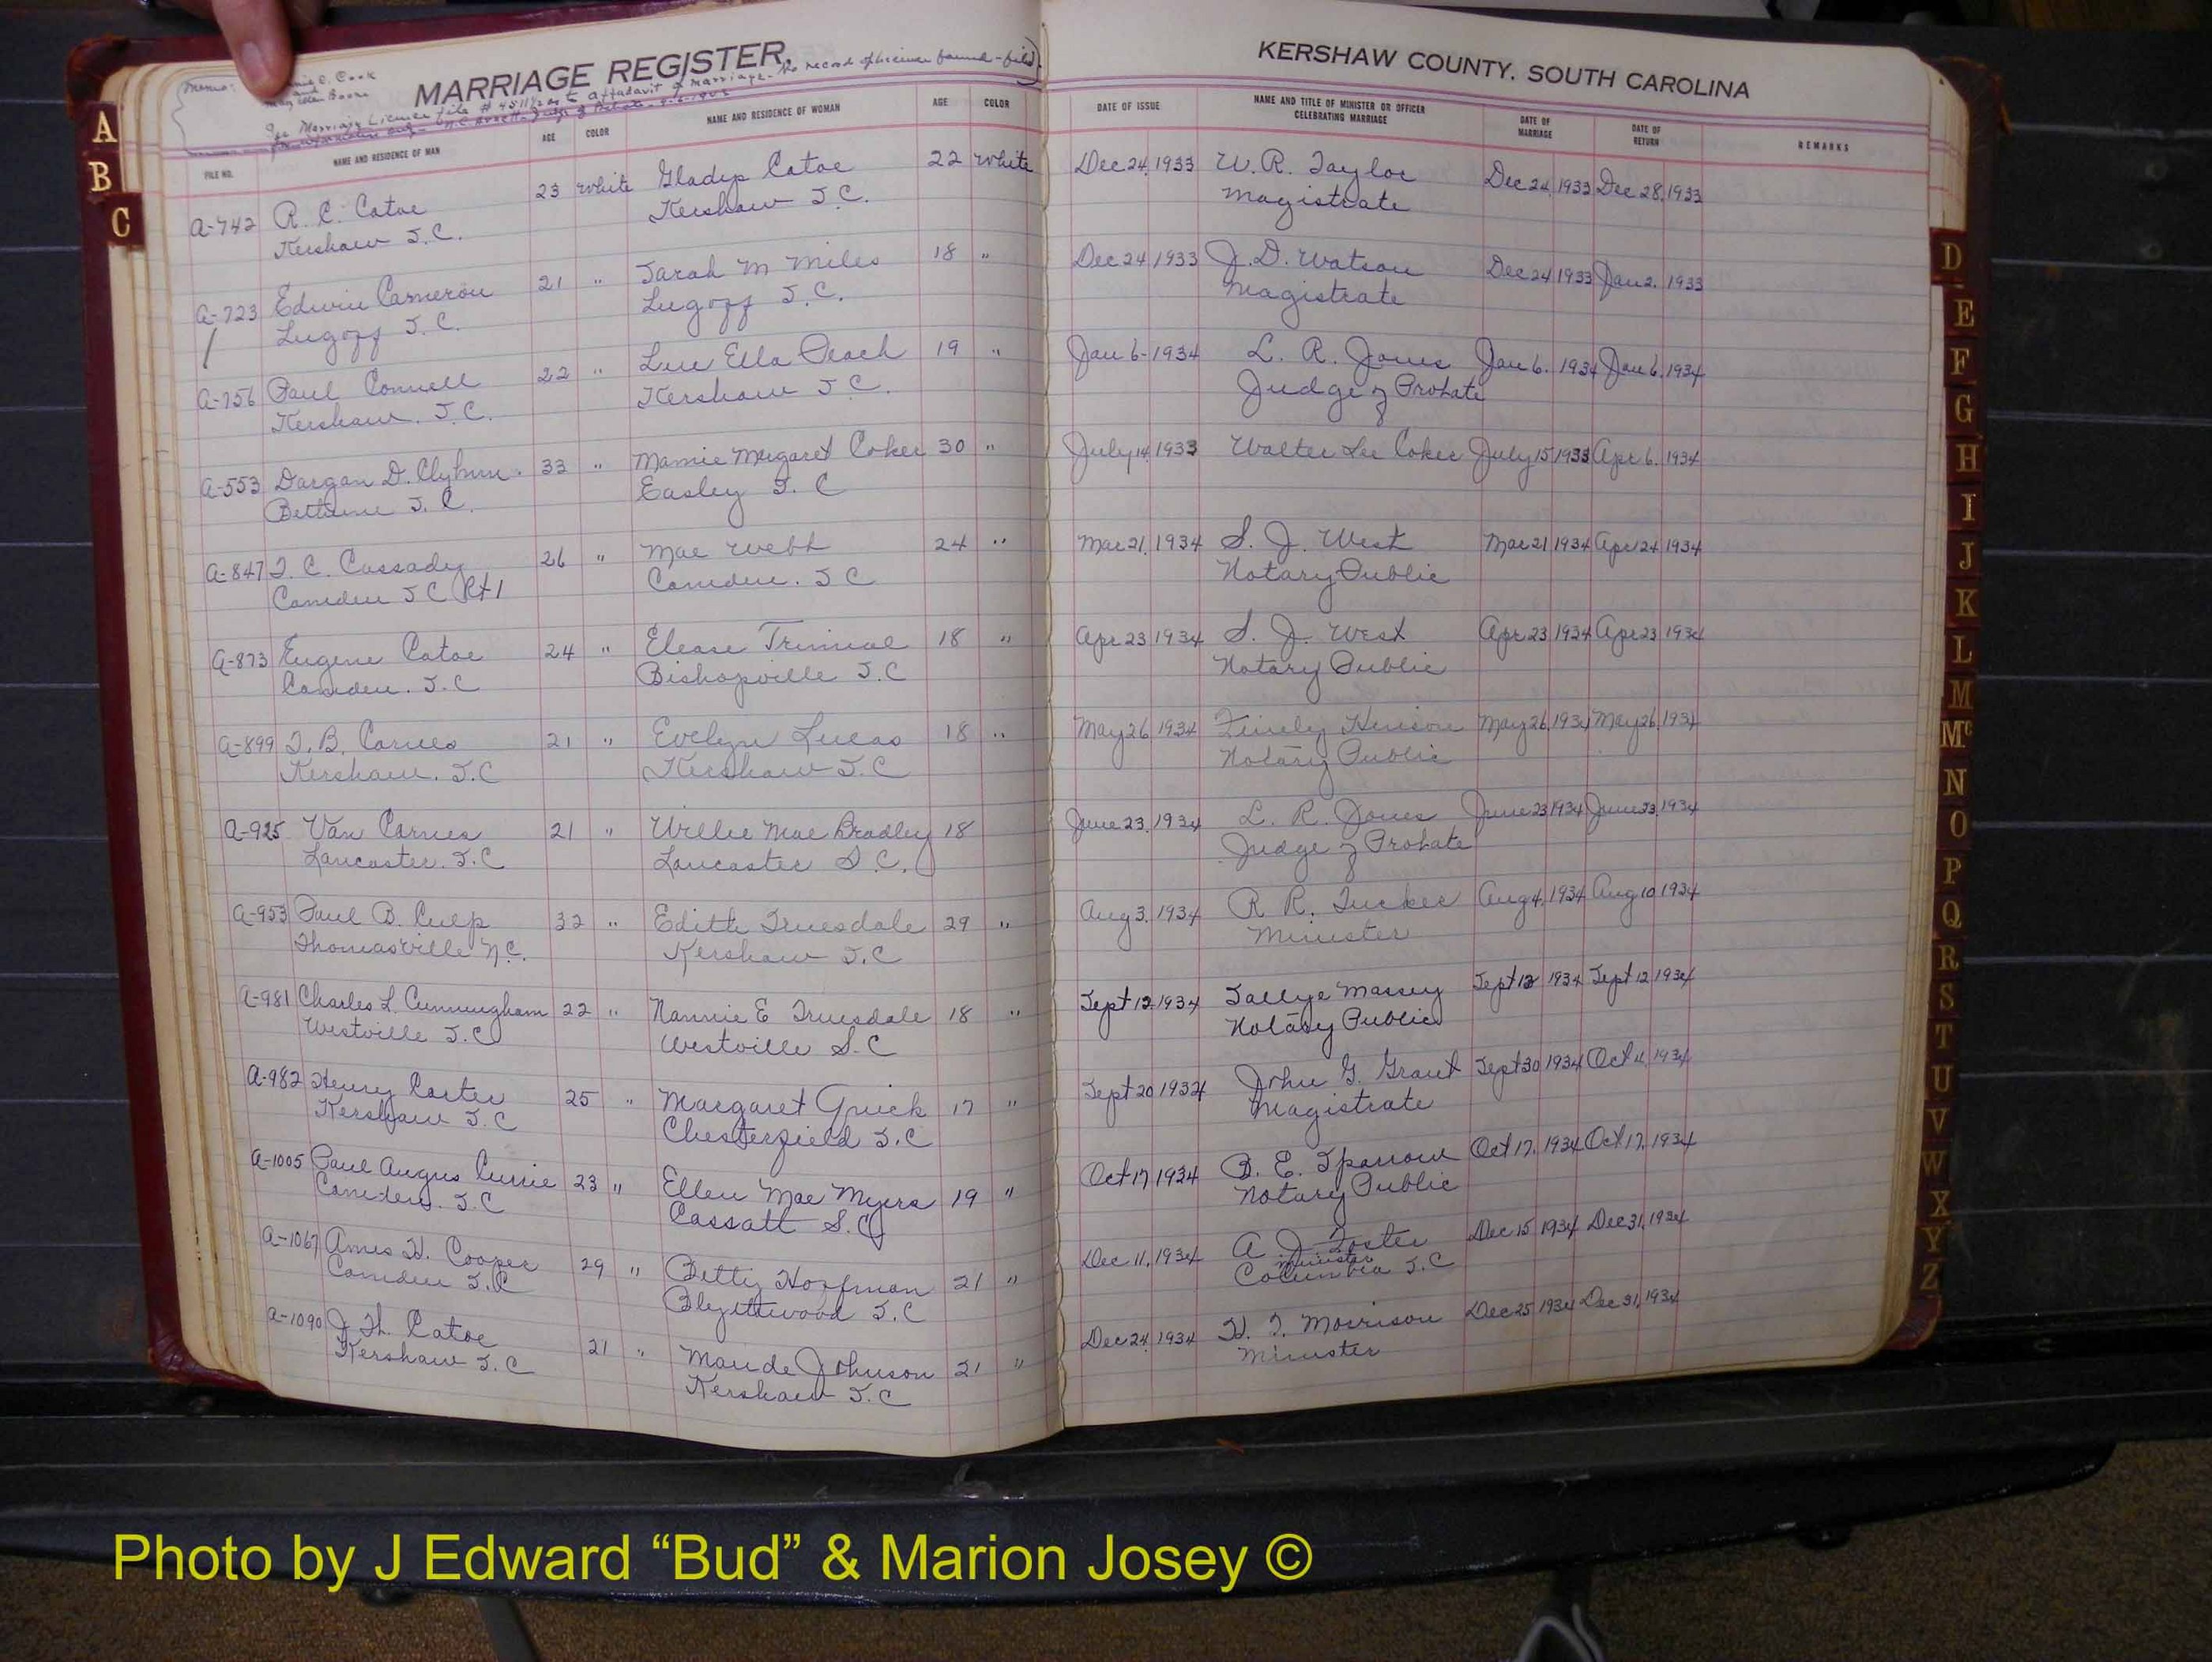 MARRIAGE REGISTER,
KERSHAW COUNTY, SOUTH CAROLINA
Memo: C. Cook
and
Boone
See Marriage License file # 4511½ as to affadavit of marriage - No record of license found - filed)
FILE NO. NAME AND RESIDENCE OF MAN AGE COLOR NAME AND RESIDENCE OF WOMAN AGE COLOR DATE OF ISSUE NAME AND TITLE OF MINISTER OR OFFICER CELEBRATING MARRIAGE DATE OF MARRIAGE DATE OF RETURN REMARKS
A-742 R. C. Catoe 23 White Gladys Catoe 22 White Dec 24, 1933 W. R. Taylor Dec 24, 1933 Dec 28, 1933
Kershaw S.C. Kershaw S.C. Magistrate
A-723 Edwin Cameron 21 " Sarah M Miles 18 " Dec 24 1933 J. D. Watson Dec 24 1933 Jan 2. 1933
Lugoff S.C. Lugoff S.C. Magistrate
A-756 Paul Connell 22 " Lue Ella Peach 19 " Jan 6-1934 L. R. Jones Jan 6. 1934 Jan 6, 1934
Kershaw. S.C. Kershaw S.C. Judge of Probate
A-553 Dargan D. Clyburn 33 " Mamie Margaret Coker 30 " July 14, 1933 Walter Lee Coker July 15 1933 Apr 6, 1934
Bethune S.C. Easley S.C
A-847 J. C. Cassady 26 " Mae Webb 24 " Mar 21, 1934 S. J. West Mar 21 1934 Apr 24 1934
Camden S C Rt 1 Camden. S C Notary Public
A-873 Eugene Catoe 24 " Elease 18 " Apr 23 1934 S. J. West Apr 23 1934 Apr 23 1934
Camden. S.C Bishopville S.C Notary Public
A-899 J. B. Carnes 21 " Evelyn Lucas 18 " May 26, 1934 Finely Henison May 26, 1934 May 26, 1934
Kershaw. S.C Kershaw S.C Notary Public
A-925 Van Carnes 21 " Willie Mae Bradley 18 June 23, 1934 L. R. Jones June 23 1934 June 23, 1934
Lancaster. S.C Lancaster S.C. Judge of Probate
A-953 Paul B. Culp 32 " Edith Truesdale 29 " Aug 3, 1934 R R. Tucker Aug 4, 1934 Aug 10 1934
Thomasville N.C. Kershaw S.C Minister
A-981 Charles L. Cunningham 22 " Nannie E Truesdale 18 " Sept 12 1934 Sallye Massey Sept 12 1934 Sept 12 1934
Westville S.C Westville S.C Notary Public
A-982 Henry Carter 25 " Margaret Quick 17 " Sept 20 1934 John G. Grant Sept 30 1934 Oct 11, 1934
Kershaw S.C Chesterfield S.C Magistrate
A-1005 Paul Angus Currie 23 " Ellen Mae Myers 19 " Oct 17 1934 B. E. Sparrow Oct 17, 1934 Oct 17, 1934
Camden. S.C Cassatt S.C Notary Public
A-1067 Ames H. Cooper 29 " Betty Hoffman 21 " Dec 11, 1934 A. J. Foster Dec 15 1934 Dec 31, 1934
Camden S.C Blythewood S.C Minister
Columbia S.C
A-1090 J. Th. Catoe 21 " Maude Johnson 21 " Dec 24, 1934 H. T. Morrison Dec 25 1934 Dec 31, 1934
Kershaw S.C Kershaw S.C Minister
A
B
C
D
E
F
G
H
I
J
K
L
M
Mc
N
O
P
Q
R
S
T
U
V
W
X
Y
Z
Photo by J Edward “Bud” & Marion Josey ©